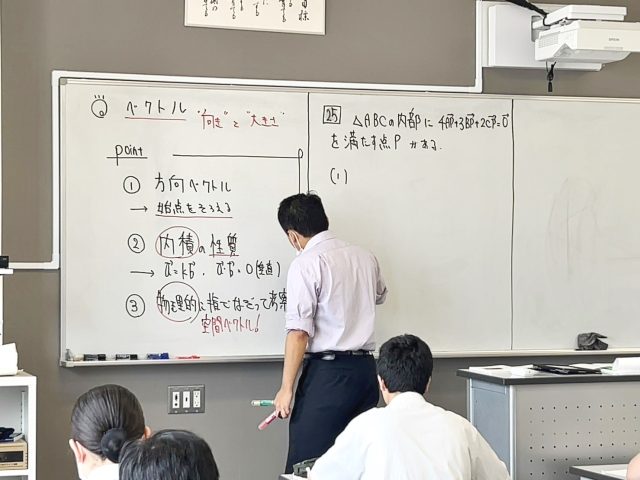 ベクトル "向き"と"大きさ"
point
① 方向ベクトル
→ 始点をそろえる
② 内積の性質
→ a⃗=kb⃗, a⃗・b⃗=0(垂直)
③ 物理的に指でなぞって考察
空間ベクトル!
25 △ABCの内部に 4AP⃗+3BP⃗+2CP⃗=0⃗
を満たす点Pがある.
(1)
EPSON